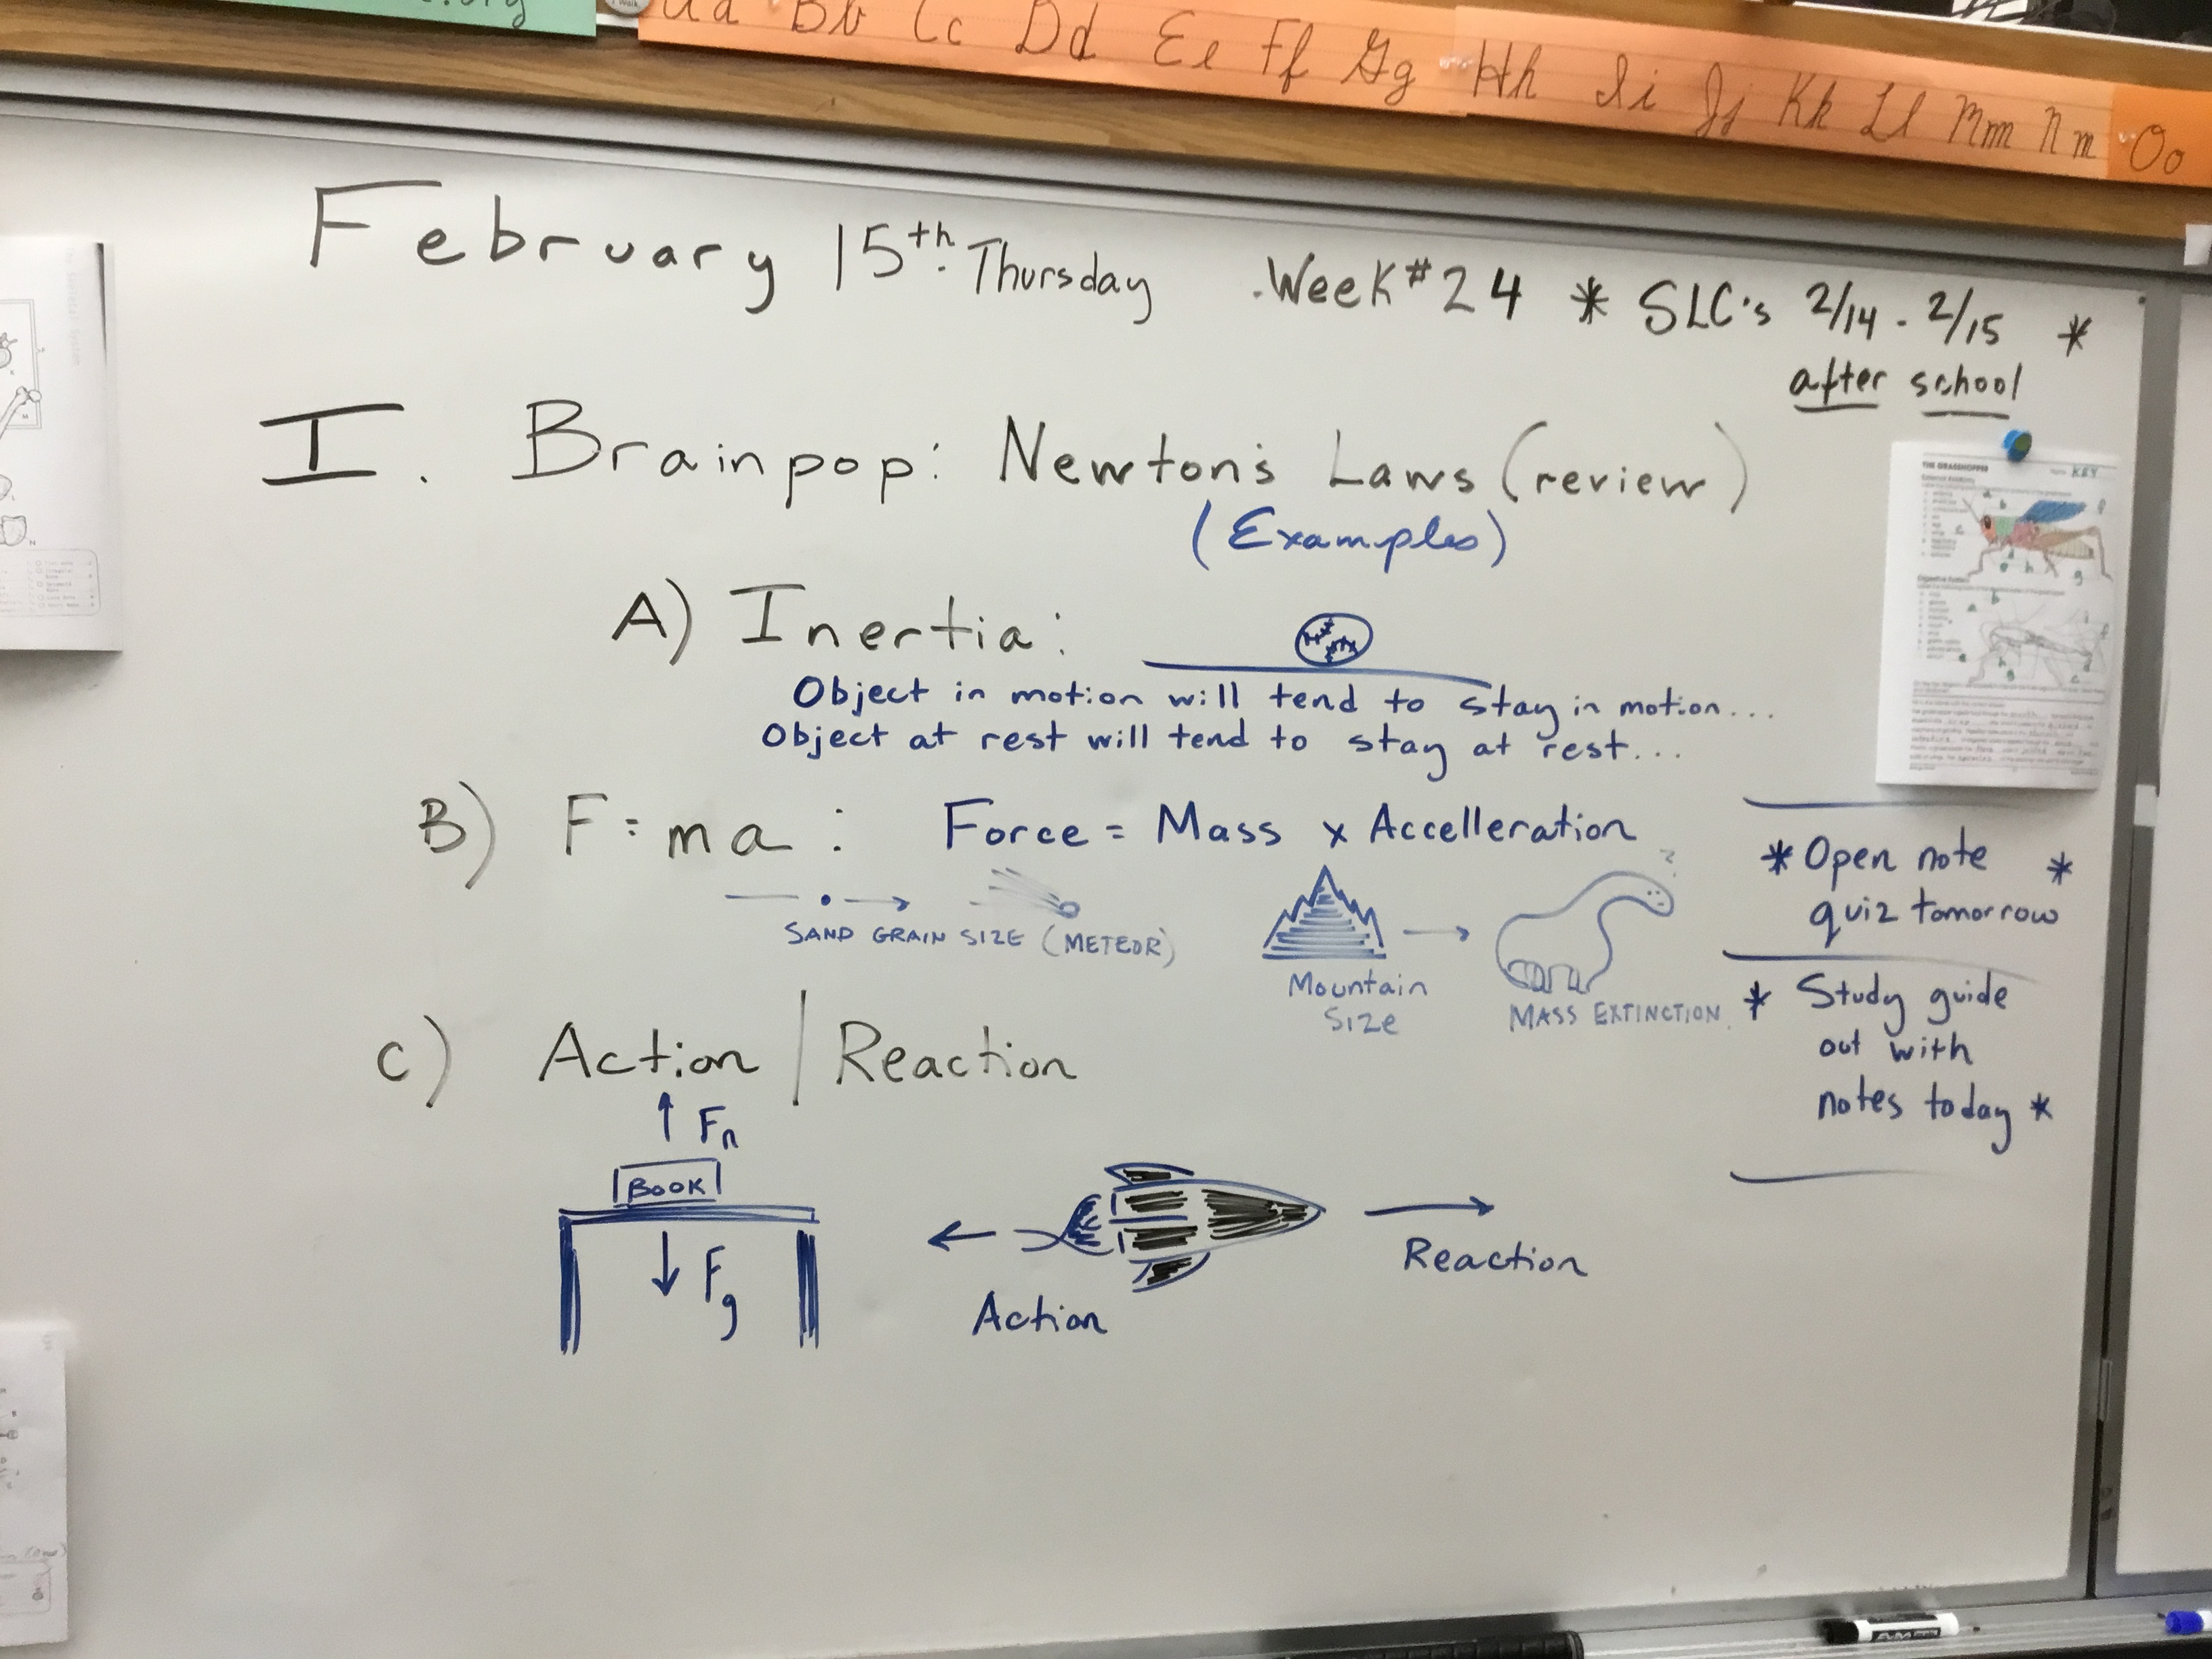 Aa Bb Cc Dd Ee Ff Gg Hh Ii Jj Kk Ll Mm Nn Oo
February 15th Thursday Week #24 * SLC's 2/14 - 2/15 *
after school
I. Brainpop: Newton's Laws (review)
(Examples)
THE GRASSHOPPER
KEY
A) Inertia:
Object in motion will tend to stay in motion...
Object at rest will tend to stay at rest...
B) F=ma: Force = Mass x Accelleration
SAND GRAIN SIZE (METEOR)
Mountain
Size
?
MASS EXTINCTION
* Open note *
quiz tomorrow
* Study guide
out with
notes today *
C) Action/Reaction
Fn
BOOK
Fg
Action
Reaction